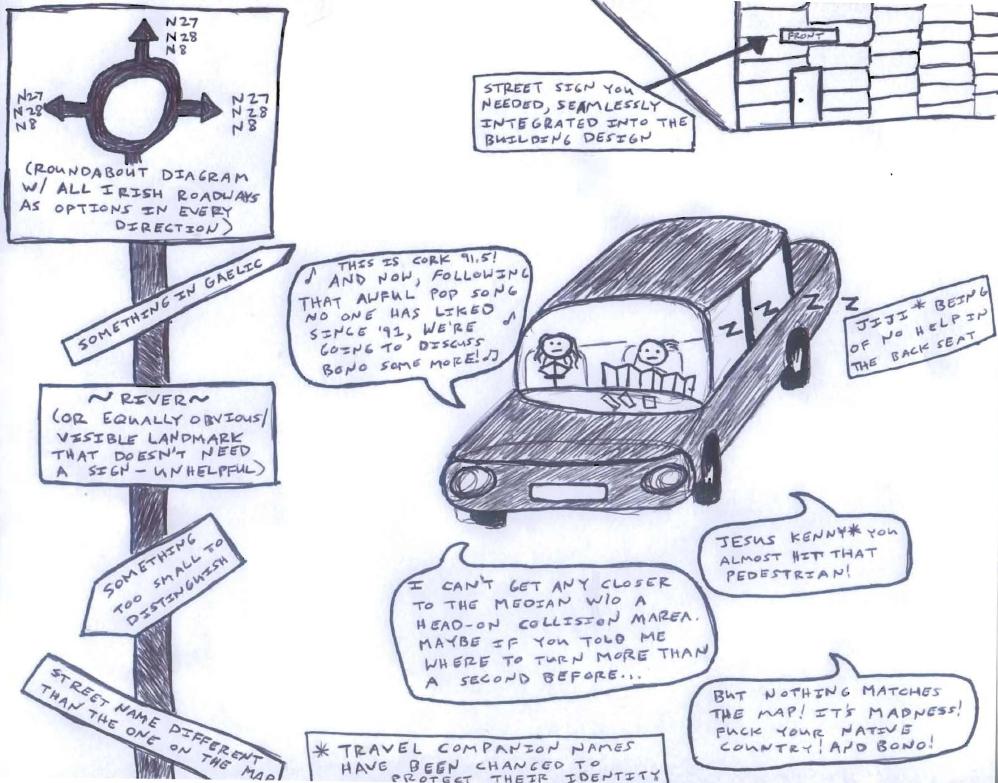 N27
N28
N8
N27
N28
N8
N27
N28
N8
(ROUNDABOUT DIAGRAM
W/ ALL IRISH ROADWAYS
AS OPTIONS IN EVERY
DIRECTION)
SOMETHING IN GAELIC
~RIVER~
(OR EQUALLY OBVIOUS/
VISIBLE LANDMARK
THAT DOESN'T NEED
A SIGN - UNHELPFUL)
SOMETHING
TOO SMALL TO
DISTINGUISH
STREET NAME DIFFERENT
THAN THE ONE ON THE MAP
STREET SIGN YOU
NEEDED, SEAMLESSLY
INTEGRATED INTO THE
BUILDING DESIGN
FRONT
♪ THIS IS CORK 91.5!
AND NOW, FOLLOWING
THAT AWFUL POP SONG
NO ONE HAS LIKED
SINCE '92, WE'RE ♪
GOING TO DISCUSS
BONO SOME MORE! ♫
Z Z Z Z
JIJI * BEING
OF NO HELP IN
THE BACK SEAT
JESUS KENNY* YOU
ALMOST HIT THAT
PEDESTRIAN!
I CAN'T GET ANY CLOSER
TO THE MEDIAN W/O A
HEAD-ON COLLISION MAREA.
MAYBE IF YOU TOLD ME
WHERE TO TURN MORE THAN
A SECOND BEFORE...
BUT NOTHING MATCHES
THE MAP! IT'S MADNESS!
FUCK YOUR NATIVE
COUNTRY! AND BONO!
* TRAVEL COMPANION NAMES
HAVE BEEN CHANGED TO
PROTECT THEIR IDENTITY